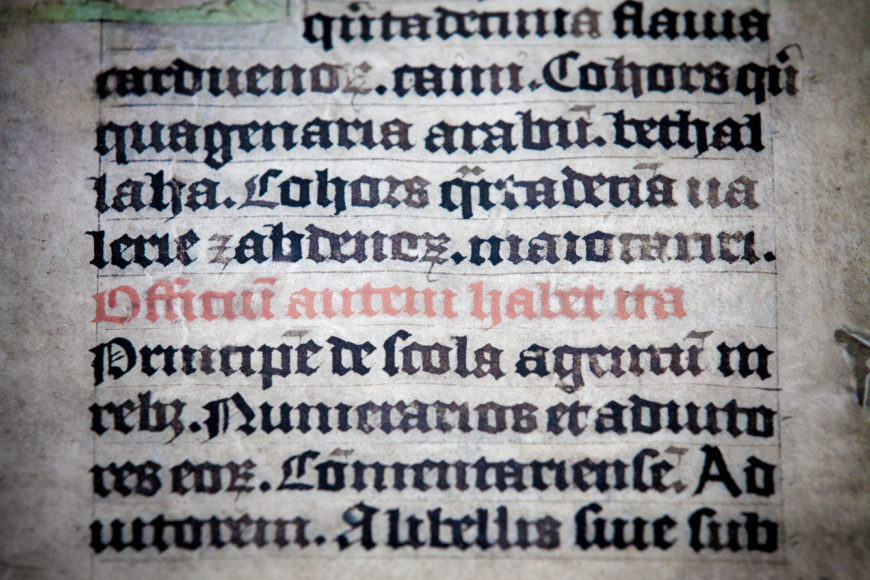 qũtadecima flauia
carduenoꝝ. caini. Cohors qũi
quagenaria arabũ. bethal
laha. Cohors q̃rtadeciã ua
lerie zabdenoꝝ. maiocariri.
Officiũ autem habet ita
Principẽ de scola agentiũ in
rebꝫ. Numerarios et adiuto
res eoꝝ. Cõmentariensẽ. Ad
iutorem. A libellis siue sub